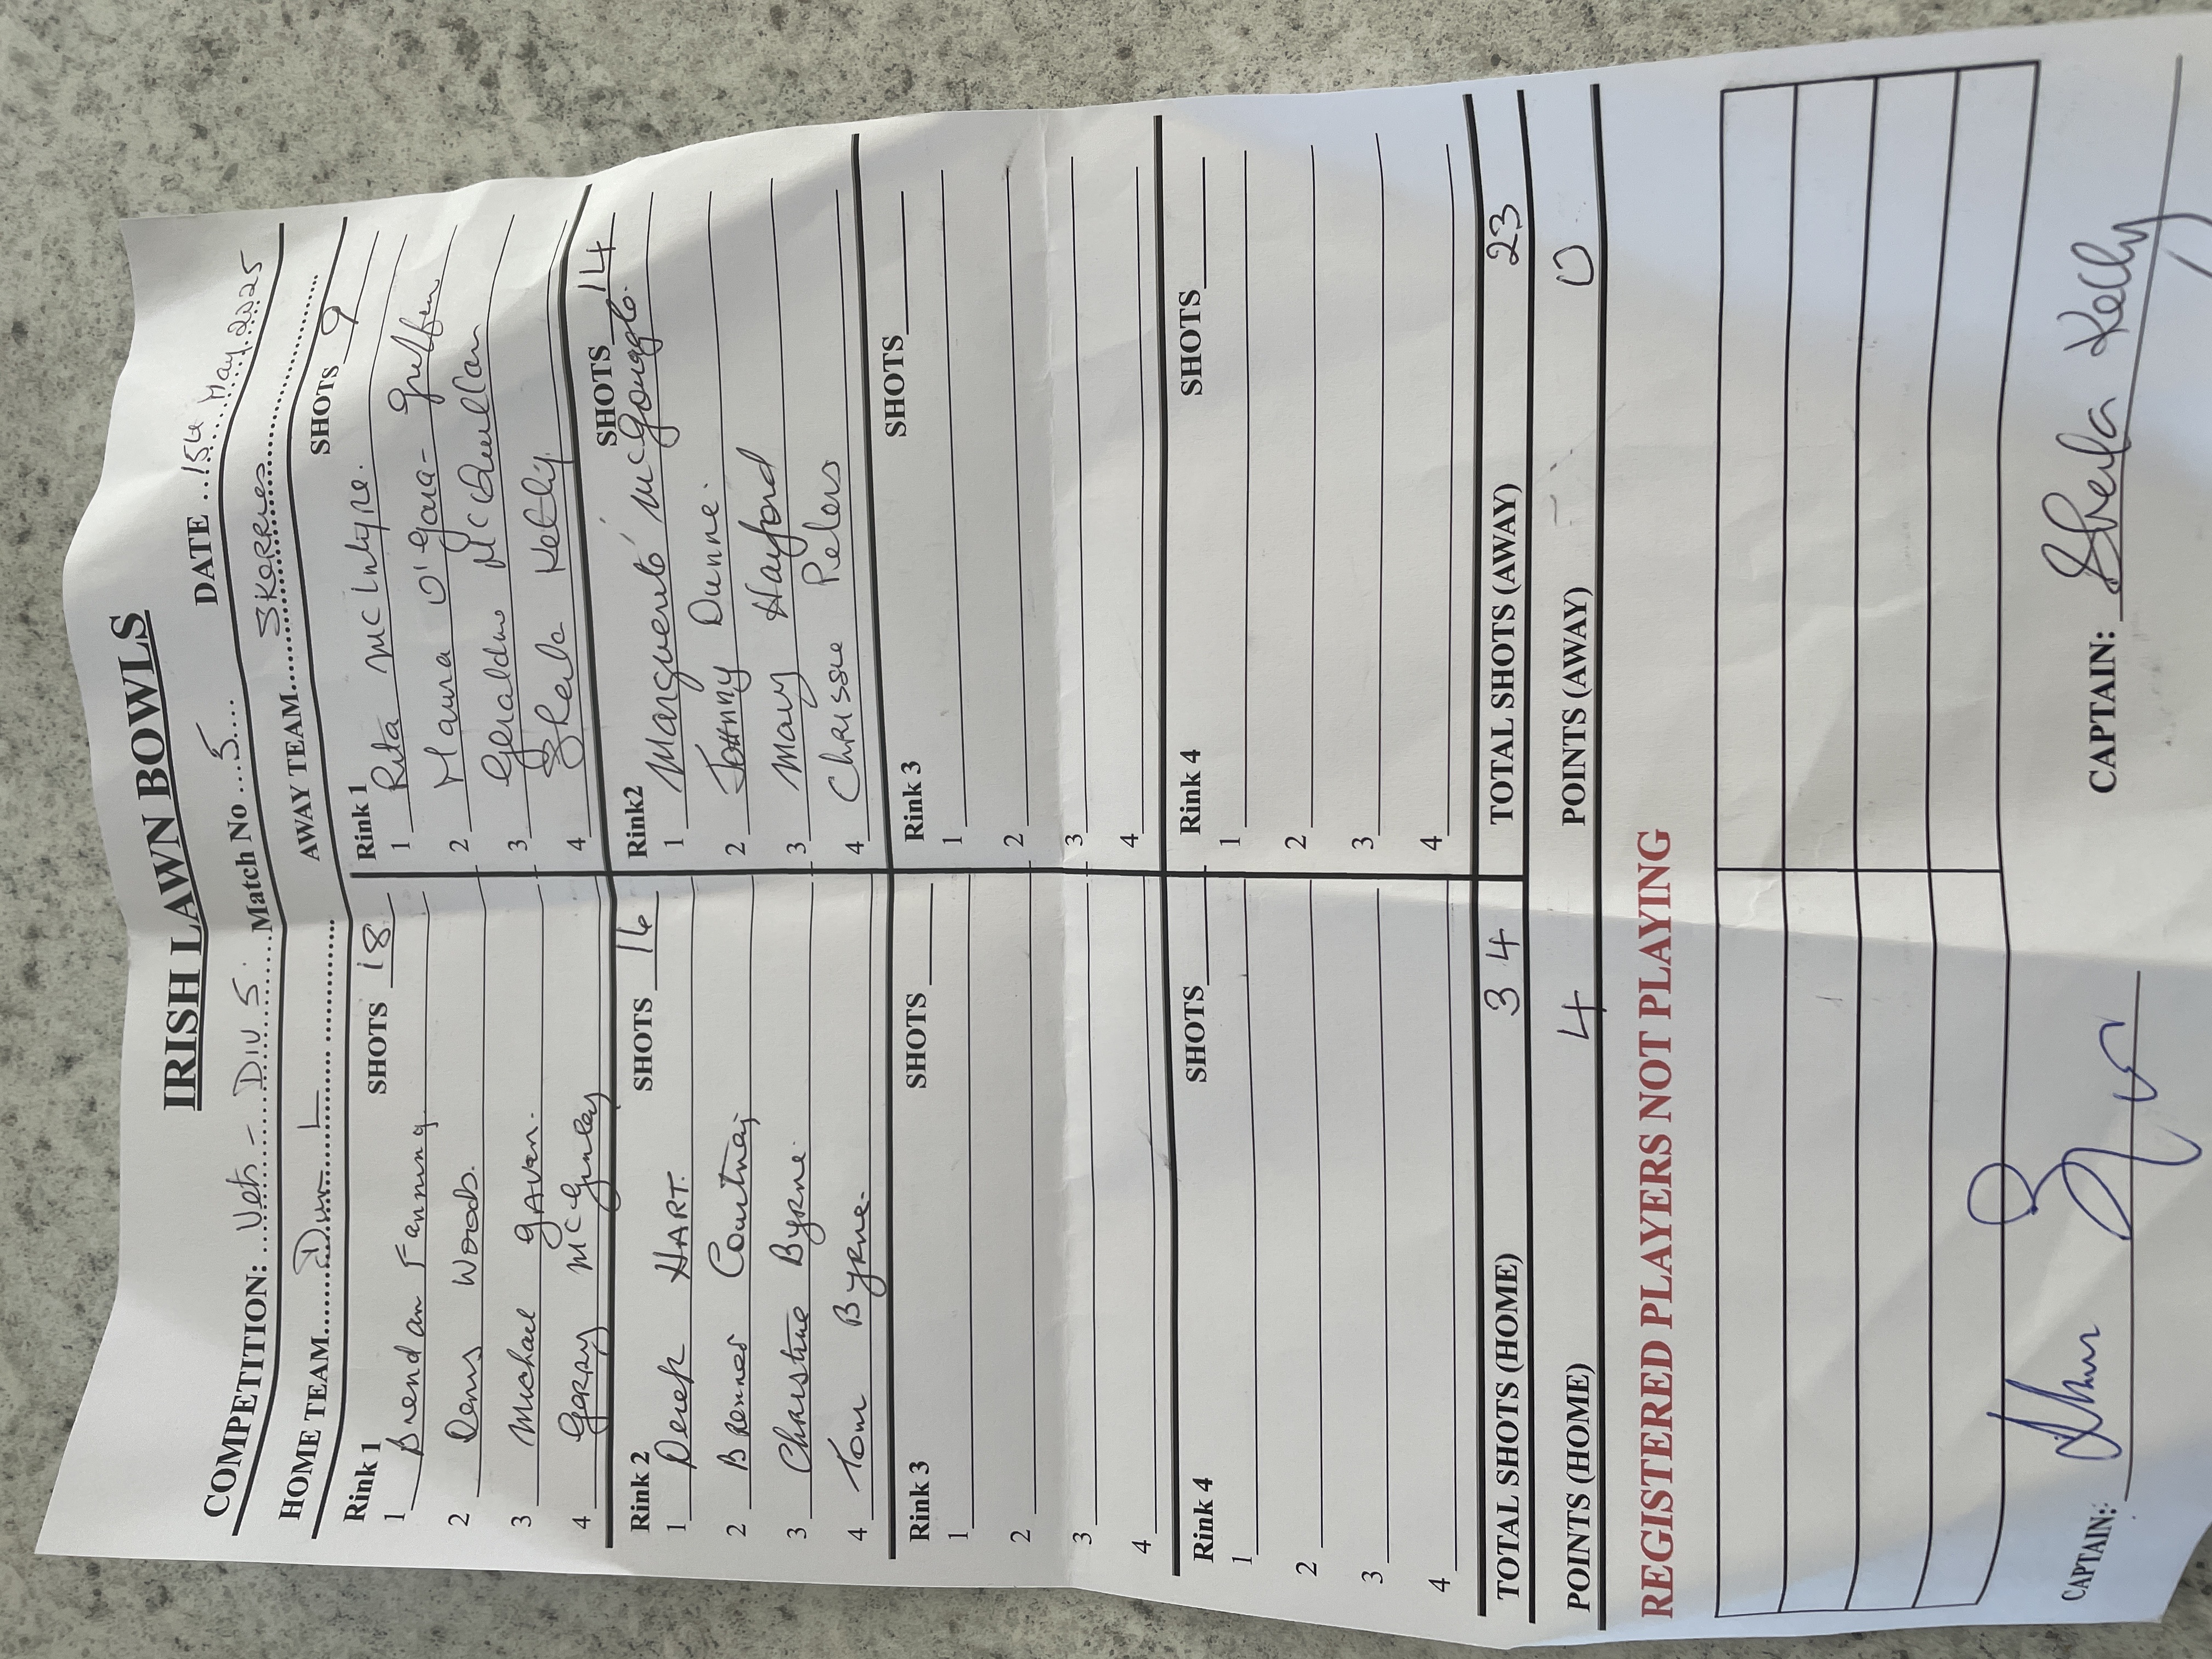 IRISH LAWN BOWLS
COMPETITION: Vets - Div 5. Match No 5 DATE 15th May 2025
HOME TEAM Dun L AWAY TEAM SKERRIES
Rink 1 SHOTS 18 Rink 1 SHOTS 9
1 Brendan Fanning 1 Rita McIntyre.
2 Denis Woods. 2 Maura O'Gara-Griffin
3 Michael Gavin. 3 Geraldine McQuillan
4 Gerry McGinley 4 Sheila Kelly
Rink 2 SHOTS 16 Rink2 SHOTS 14
1 Derek HART. 1 Marguerite McGonagle.
2 Courtney 2 Johnny Dunne.
3 Christine Byrne. 3 Mary Hayford
4 Tom Byrne. 4 Chrissie Peters
Rink 3 SHOTS Rink 3 SHOTS
1 1
2 2
3 3
4 4
Rink 4 SHOTS Rink 4 SHOTS
1 1
2 2
3 3
4 4
TOTAL SHOTS (HOME) 34 TOTAL SHOTS (AWAY) 23
POINTS (HOME) 4 POINTS (AWAY) 0
REGISTERED PLAYERS NOT PLAYING
CAPTAIN: CAPTAIN: Sheila Kelly